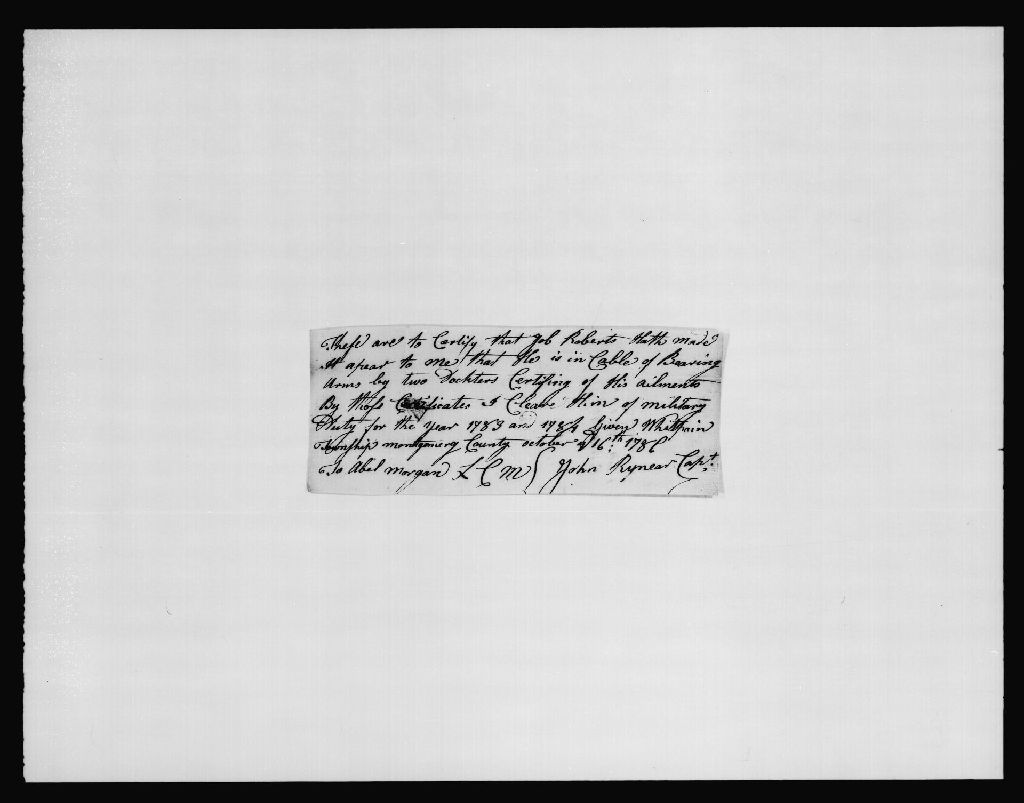 These are to Certify that Job Roberts Hath made
It apear to me that He is in Cable of Bearing
Arms by two Dockters Certifing of His ailments
By thoss Certificates I Cleare Him of military
Duty for the year 1783 and 1784 Given Whitpain
Township montgomery County october ye 16th 1786
To Abel morgan L C M { John Rynear Capt.